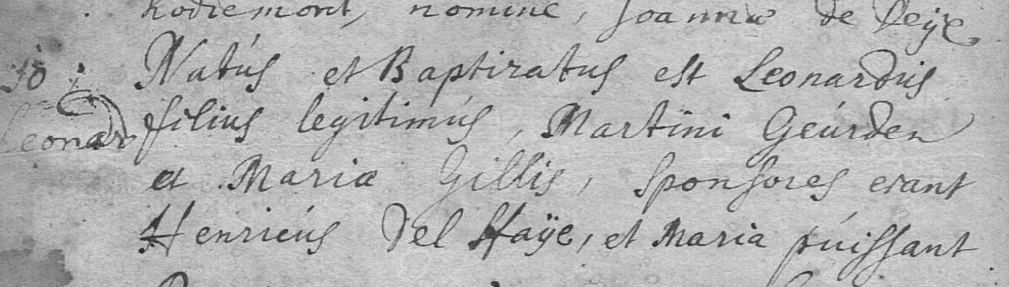 Rodiemont, nomine, Joannæ de Veye
10 Natús et Baptizatus est Leonardus
Leonard filius legitimús, Martini Geúrden
et Mariæ Gillis, Sponsores erant
Henricús Del Haÿe, et Maria púissant